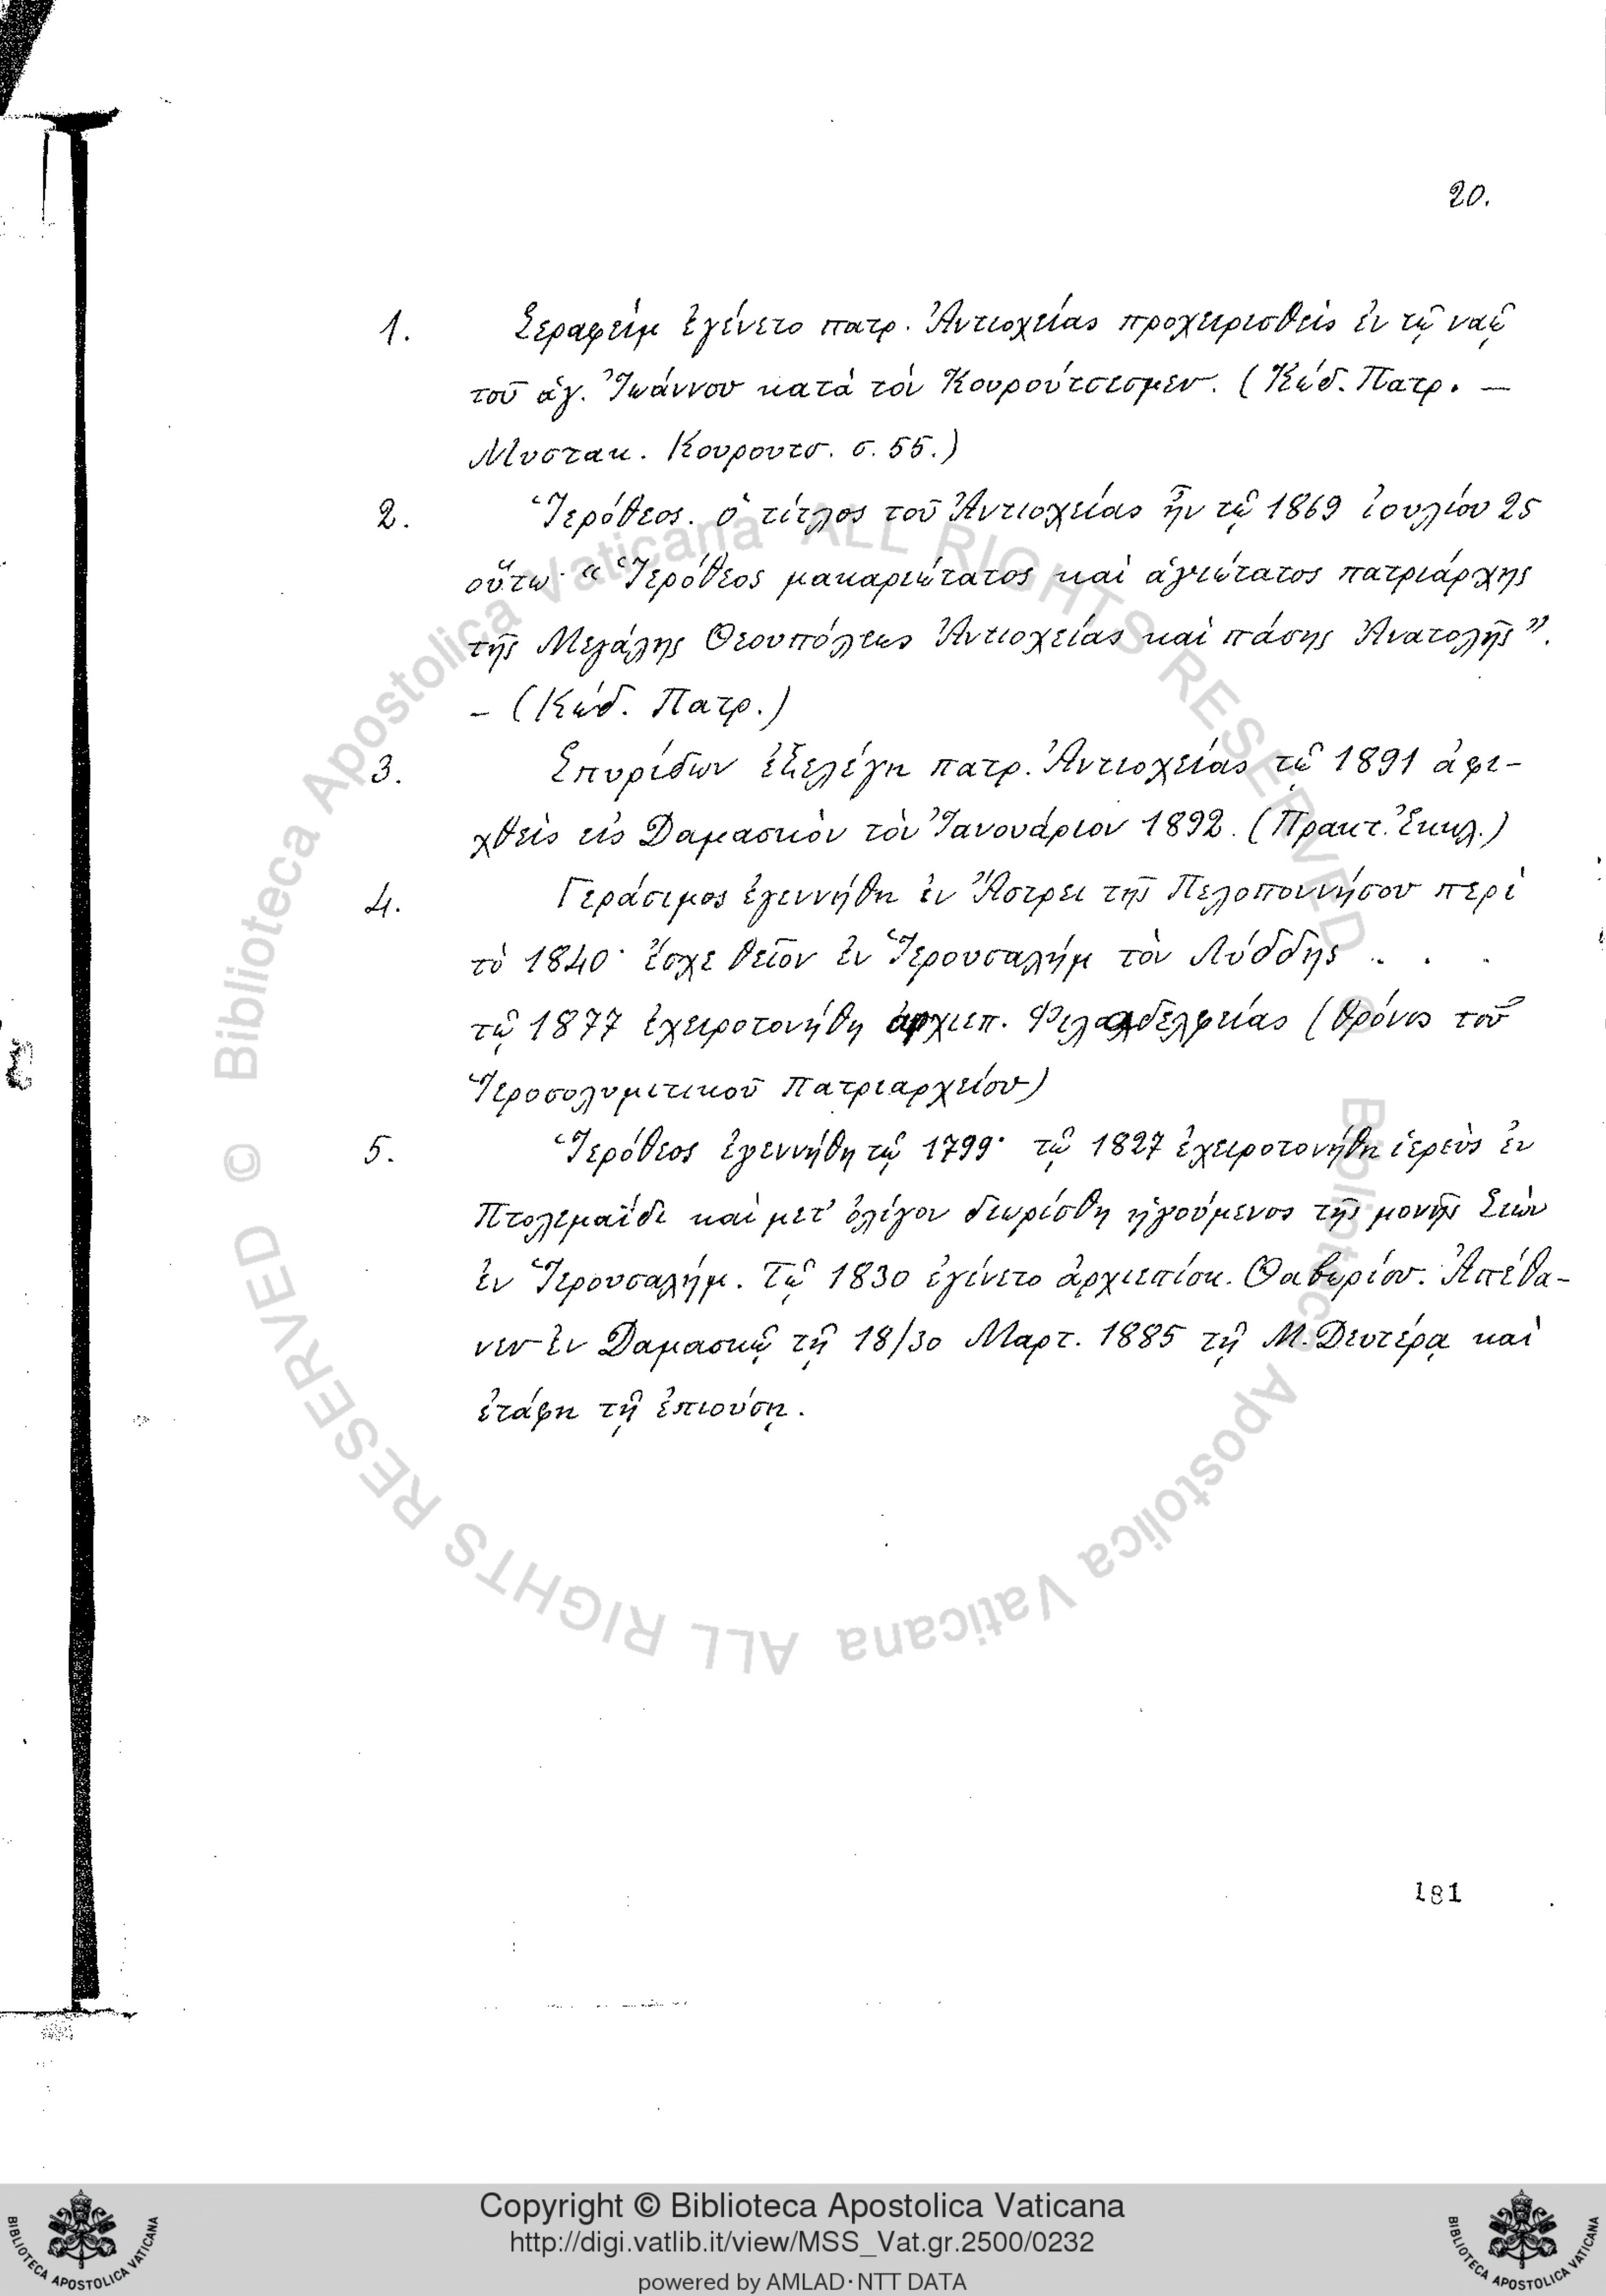 20.
1. Σεραφεὶμ ἐγένετο πατρ. Ἀντιοχείας προχειρισθεὶς ἐν τῷ ναῷ
τοῦ ἁγ. Ἰωάννου κατὰ τὸν Κουρούτσεσμεν. (Κώδ. Πατρ. —
Μυστακ. Κουρουτσ. σ. 55.)
2. Ἱερόθεος. ὁ τίτλος τοῦ Ἀντιοχείας ἦν τῷ 1869 ἰουλίου 25
οὕτω· « Ἱερόθεος μακαριώτατος καὶ ἁγιώτατος πατριάρχης
τῆς Μεγάλης Θεουπόλεως Ἀντιοχείας καὶ πάσης Ἀνατολῆς ”.
– (Κώδ. Πατρ.)
3. Σπυρίδων ἐξελέγη πατρ. Ἀντιοχείας τῷ 1891 ἀφι-
χθεὶς εἰς Δαμασκὸν τὸν Ἰανουάριον 1892. (Πρακτ. Ἐκκλ.)
4. Γεράσιμος ἐγεννήθη ἐν Ἄστρει τῆς Πελοποννήσου περὶ
τὸ 1840· ἔσχε θεῖον ἐν Ἱερουσαλὴμ τὸν Λύδδης . . .
τῷ 1877 ἐχειροτονήθη ἀρχιεπ. Φιλαδελφείας (θρόνος τοῦ
Ἱεροσολυμιτικοῦ Πατριαρχείου)
5. Ἱερόθεος ἐγεννήθη τῷ 1799· τῷ 1827 ἐχειροτονήθη ἱερεὺς ἐν
Πτολεμαΐδι καὶ μετ' ὀλίγον διωρίσθη ἡγούμενος τῆς μονῆς Σιὼν
ἐν Ἱερουσαλήμ. Τῷ 1830 ἐγένετο ἀρχιεπίσκ. Θαβωρίου. Ἀπέθα-
νεν ἐν Δαμασκῷ τῇ 18/30 Μαρτ. 1885 τῇ Μ. Δευτέρᾳ καὶ
ἐτάφη τῇ ἐπιούσῃ.
181
© Biblioteca Apostolica Vaticana ALL RIGHTS RESERVED
© Biblioteca Apostolica Vaticana ALL RIGHTS RESERVED
Copyright © Biblioteca Apostolica Vaticana
http://digi.vatlib.it/view/MSS_Vat.gr.2500/0232
powered by AMLAD·NTT DATA
BIBLIOTECA APOSTOLICA VATICANA
BIBLIOTECA APOSTOLICA VATICANA